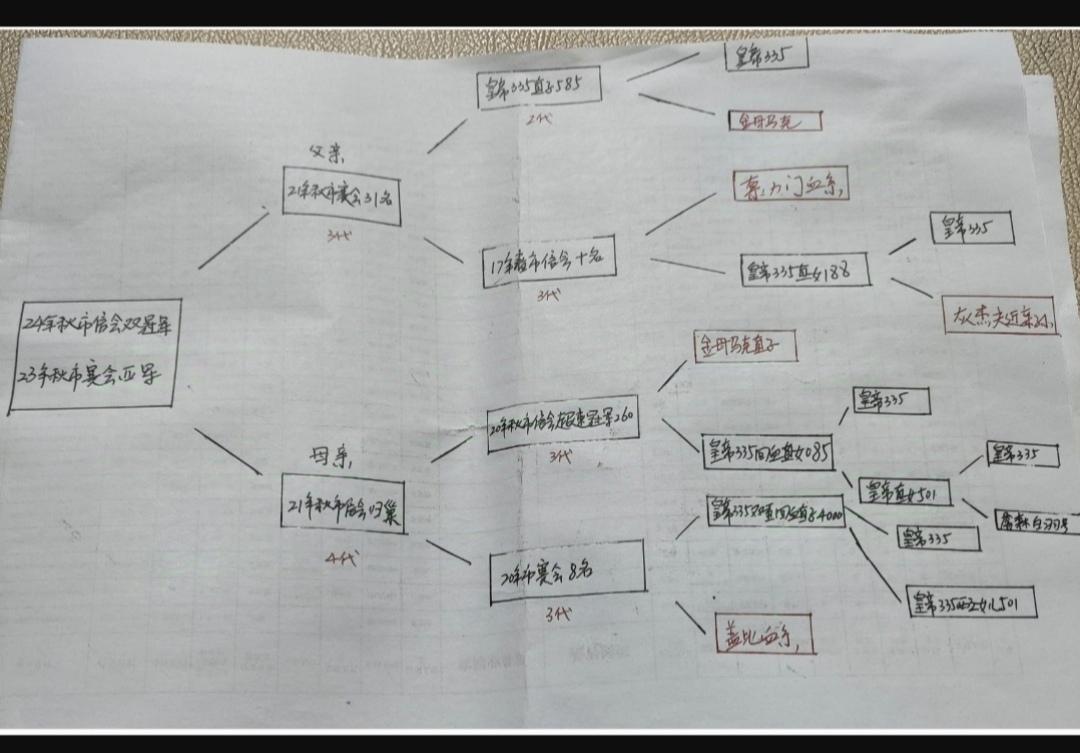 皇帝335
皇帝335直子585
2代
金母马克
父亲
21年秋市赛会31名
3代
幕力门血系
17年春市信会十名
3代
皇帝335直女188
皇帝335
24年秋市信会双冠军
23年秋市赛会亚军
金母马克直子
20年秋市信会超速冠军260
3代
皇帝335回血直女085
皇帝335
母亲
21年秋市信会归巢
4代
皇帝直女501
皇帝335
皇帝335双重回血直子4000
皇帝335
20年市赛会8名
3代
皇帝335直女儿501
盖比血系